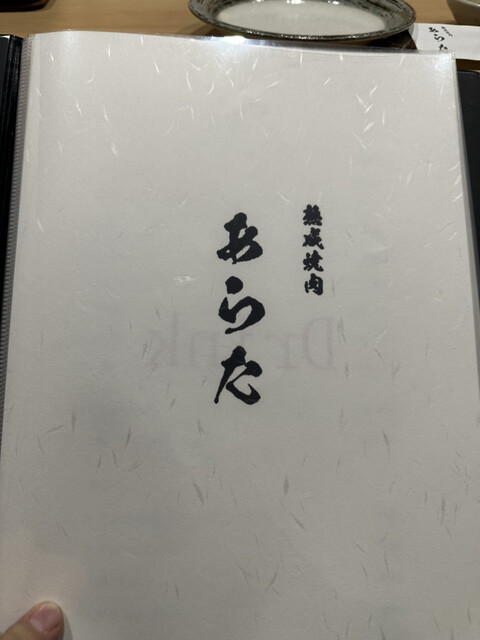 熟成焼肉
あらた
Drink
あらた